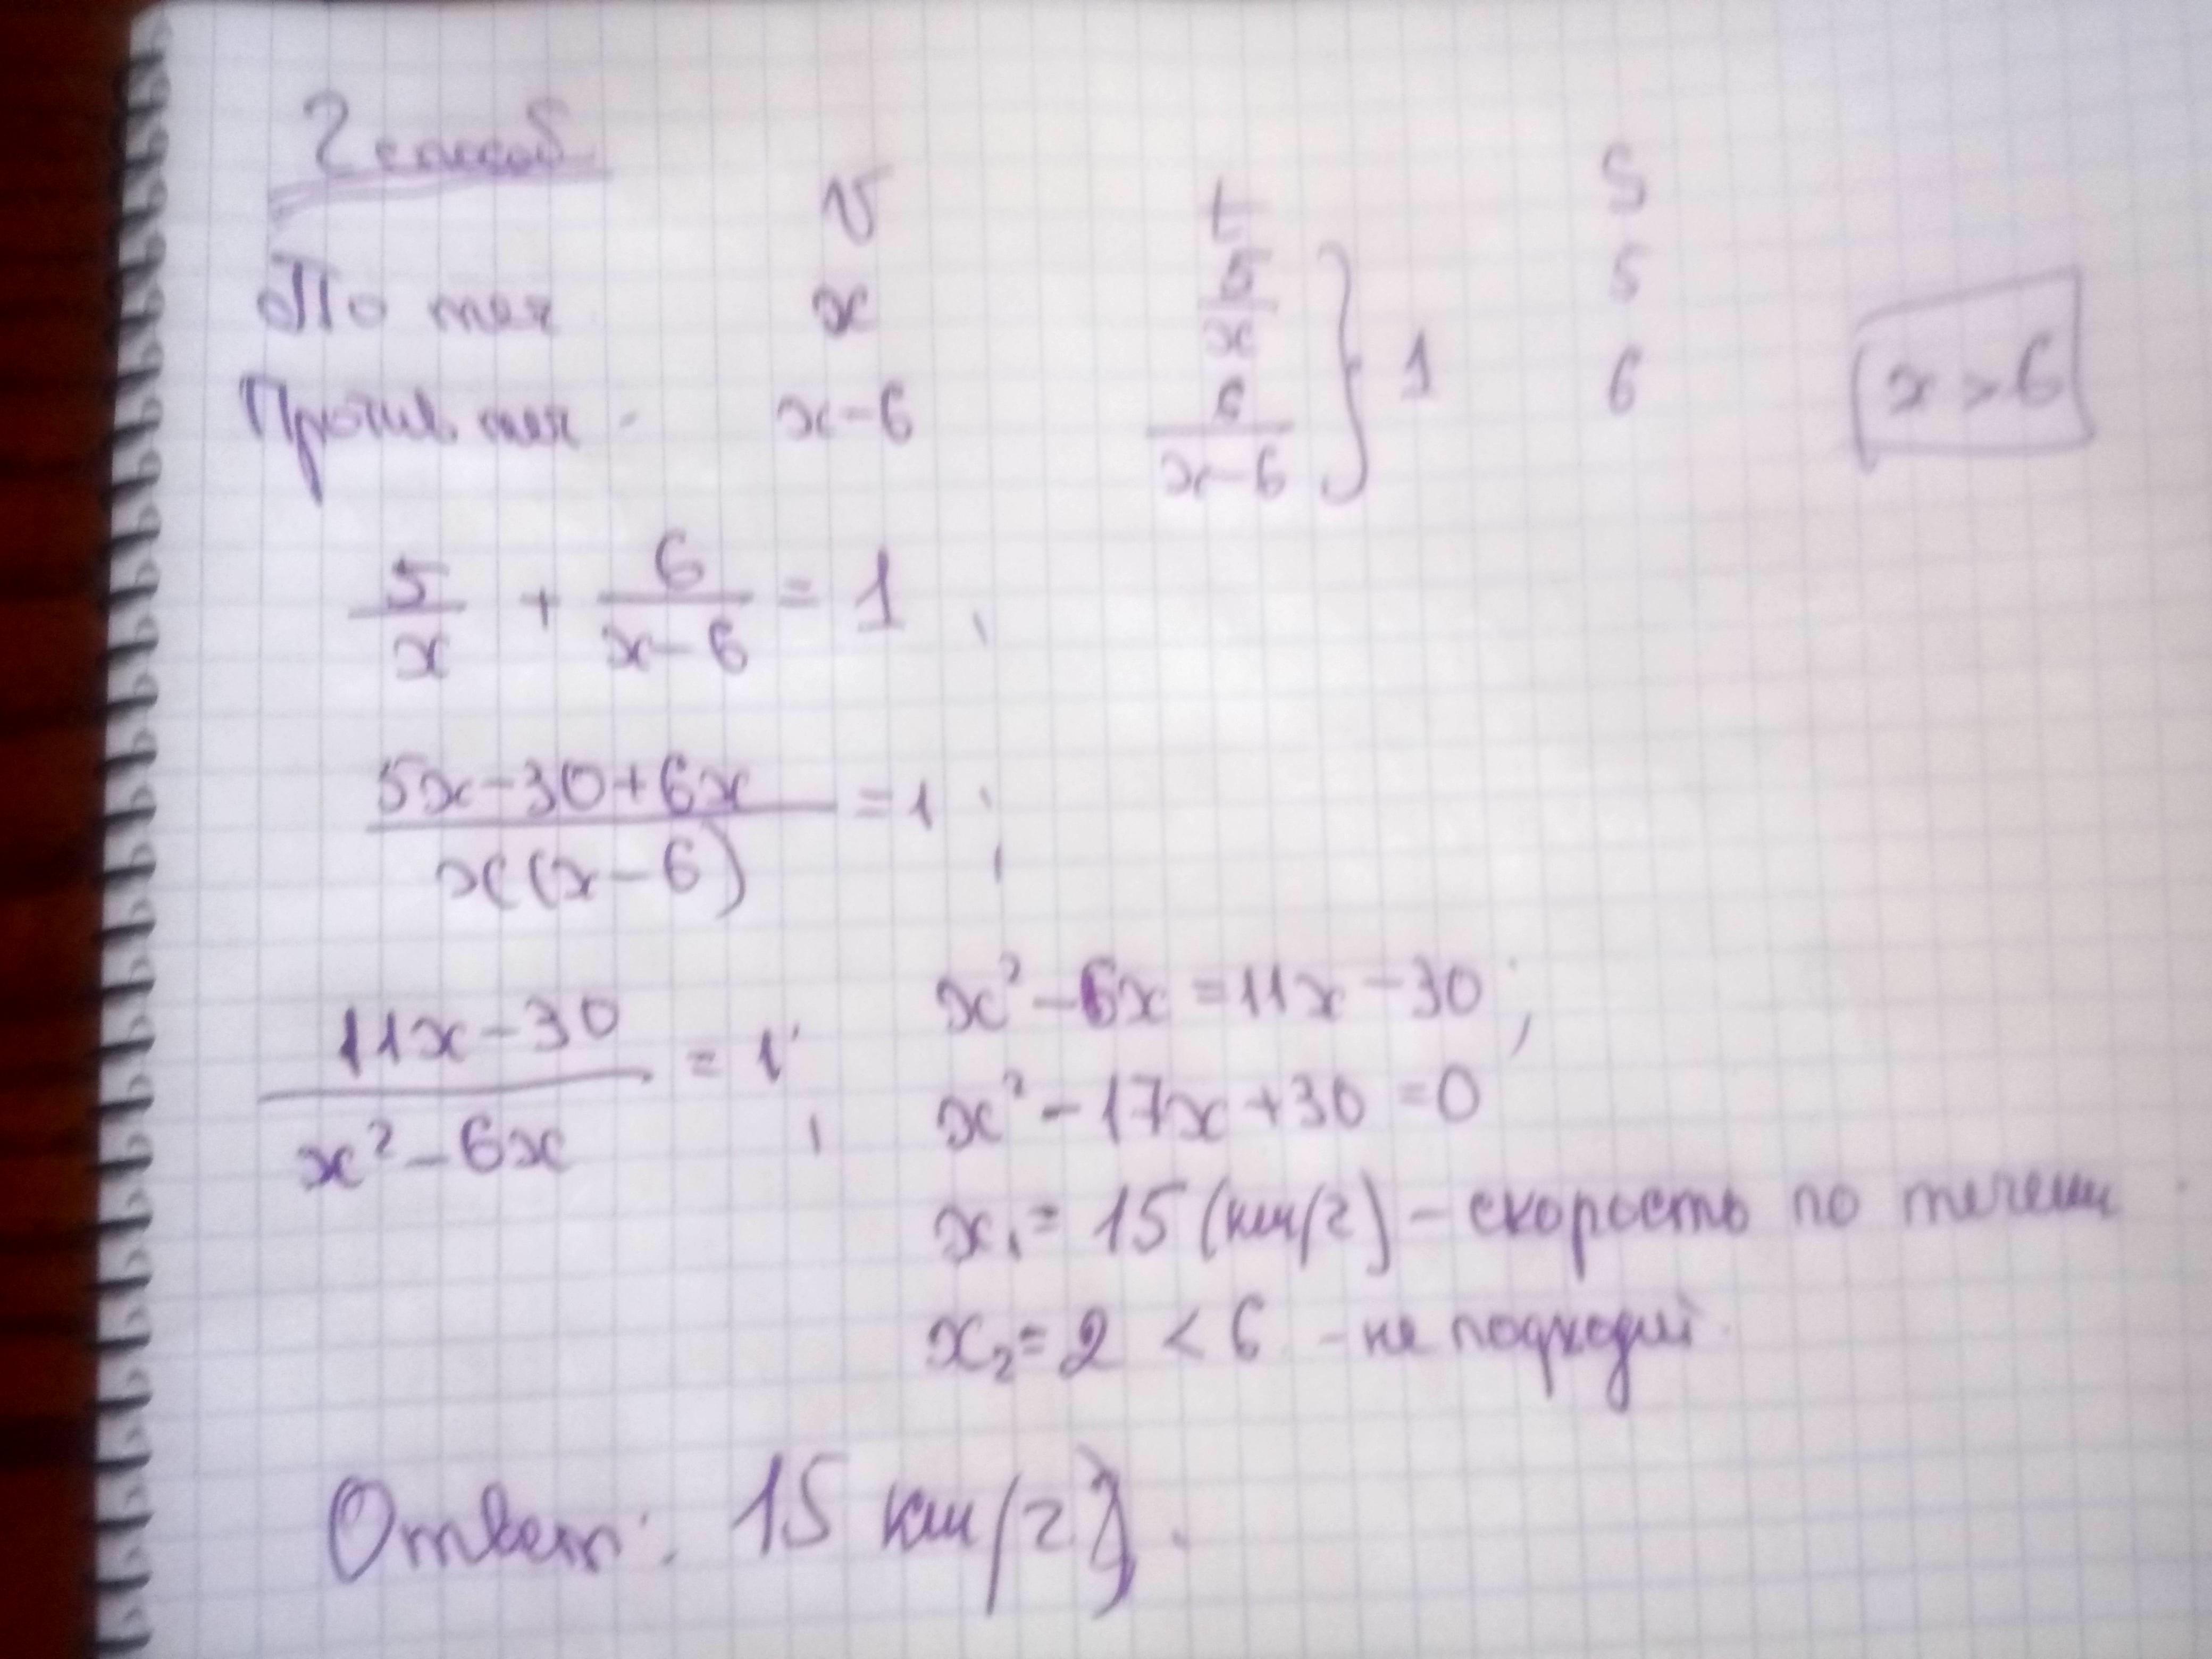 2 способ
V t S
По теч x 5/x 5
Против теч. x-6 6/(x-6) } 1 6 x > 6
5/x + 6/(x-6) = 1;
(5x-30+6x)/(x(x-6)) = 1;
(11x-30)/(x²-6x) = 1;
x²-6x=11x-30;
x²-17x+30=0
x₁= 15 (км/ч) - скорость по течени
x₂= 2 < 6 - не подходит.
Ответ: 15 км/ч.